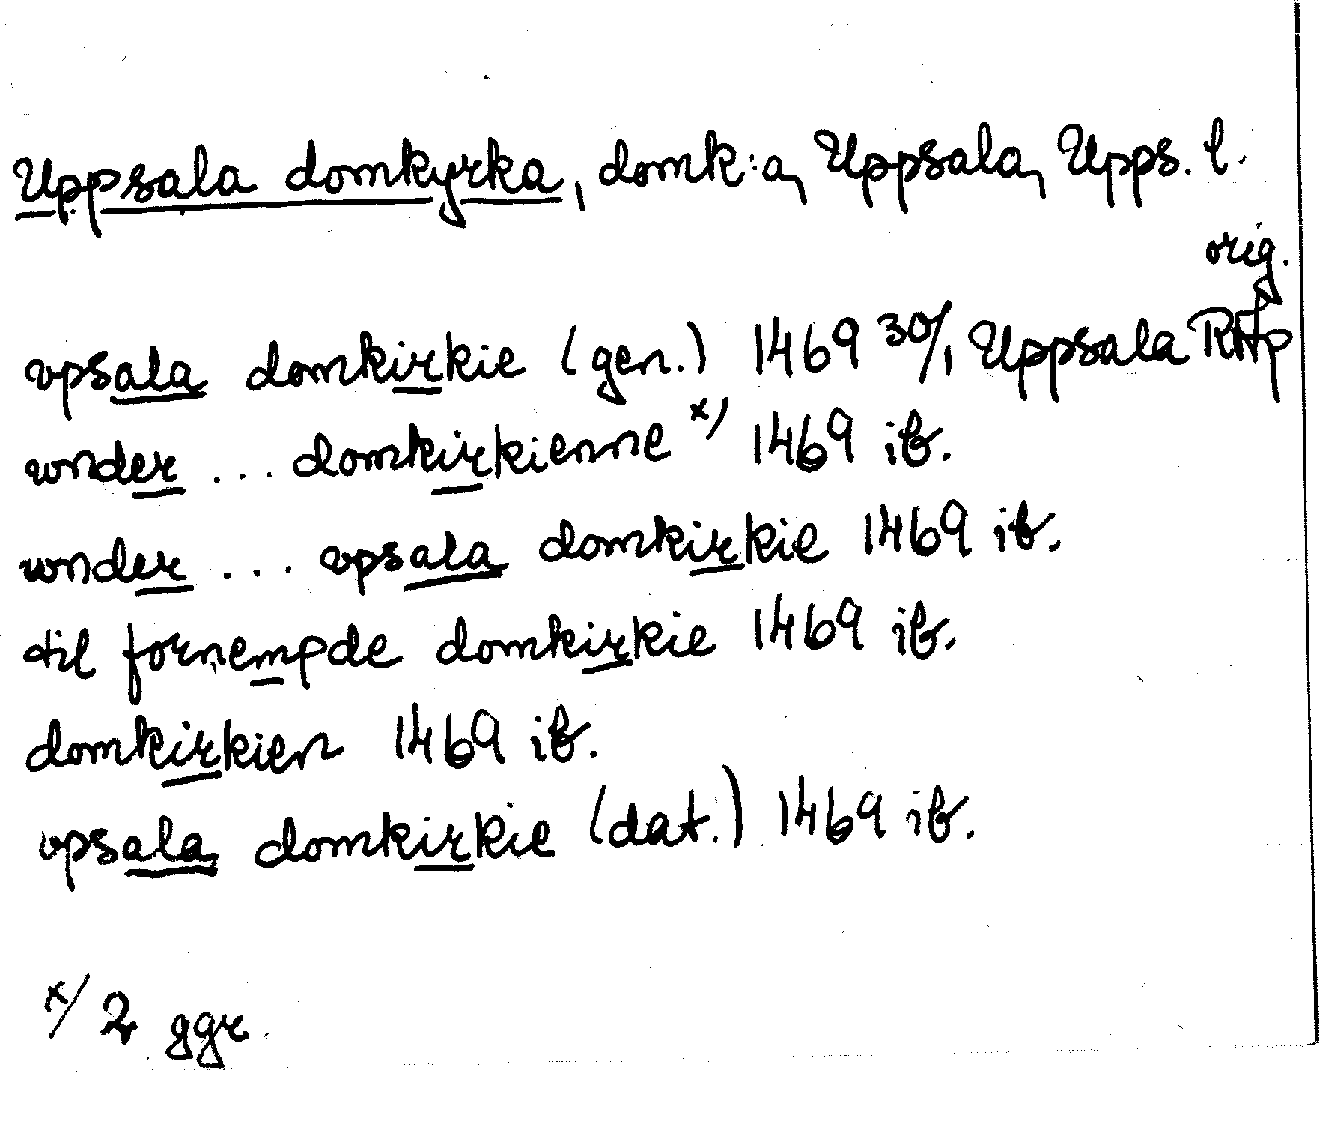 Uppsala domkyrka, domk:a, Uppsala, Upps. l.
orig.
vpsala domkirkie (gen.) 1469 30/1 Uppsala RAp
wnder ... domkirkienne x) 1469 ib.
wnder ... vpsala domkirkie 1469 ib.
til fornempde domkirkie 1469 ib.
domkirkien 1469 ib.
vpsala domkirkie (dat.) 1469 ib.
x/ 2 ggr.